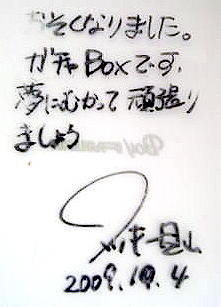 おそくなりました。
ガチャBoxです。
夢にむかって頑張り
ましょう
2009.10.4